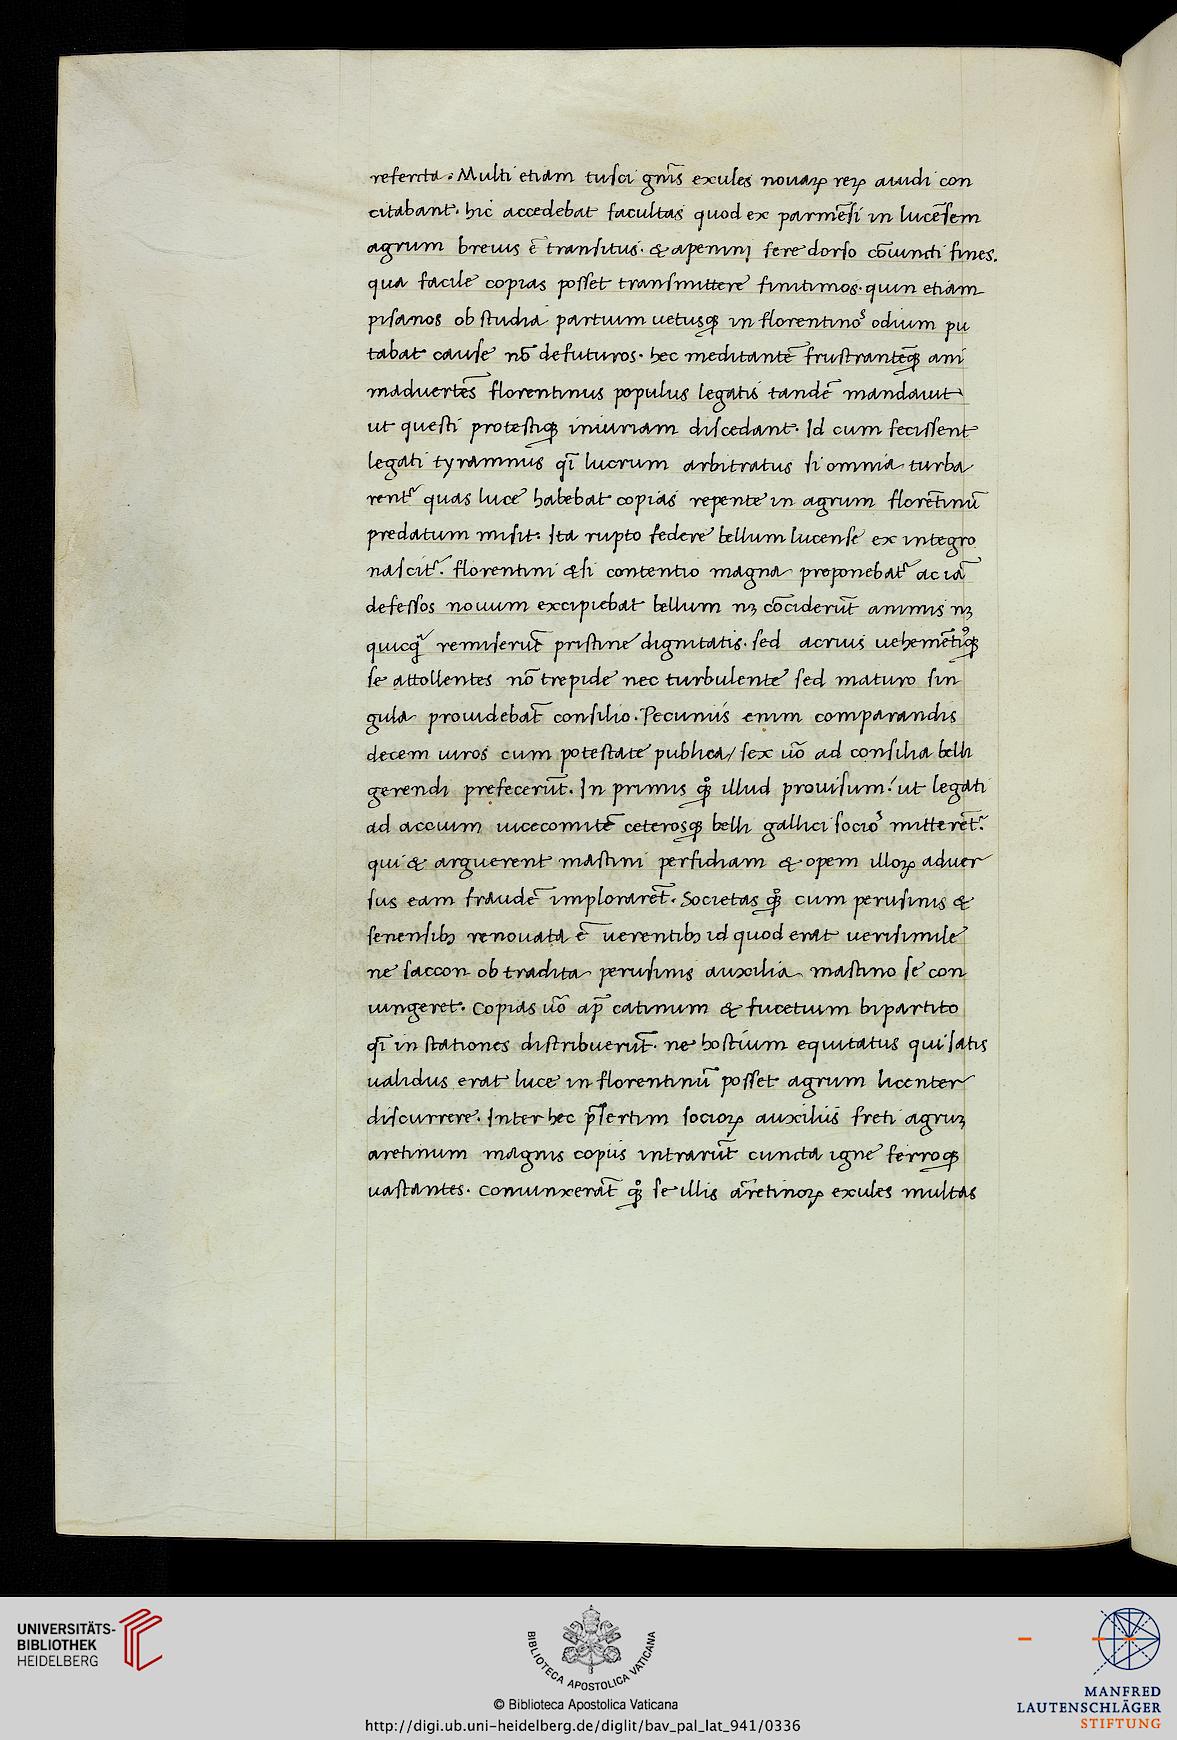 referta. Multi etiam tusci gn̄is exules nouaꝝ reꝝ auidi con
citabant. hic accedebat facultas quod ex parmēsi in lucēsem
agrum breuis ē transitus. & apenini fere dorso cōiuncti fines.
qua facile copias posset transmittere finitimos. quin etiam
pisanos ob studia partium uetusqꝫ in florentinoˢ odium pu
tabat cause nō defuturos. hec meditantē frustrantēqꝫ ani
maduertēs florentinus populus legatis tandē mandauit
ut questi protestiqꝫ iniuriam discedant. Id cum fecissent
legati tyramnus qī lucrum arbitratus si omnia turba
rent᷑ quas luce habebat copias repente in agrum florētinū
predatum misit. Ita rupto federe bellum lucense ex integro
nascit᷑. florentini &si contentio magna proponebat᷑ ac iā
defessos nouum excipiebat bellum nꝫ cōciderūt animis nꝫ
quicq̄ remiserūt pristine dignitatis. sed acrius uehemētiꝰqꝫ
se attollentes nō trepide nec turbulente sed maturo sin
gula prouidebāt consilio. Pecuniis enim comparandis
decem uiros cum potestate publica/ sex uō ad consilia belli
gerendi prefecerūt. In primis qꝫ illud prouisum! ut legati
ad accium uicecomitē ceterosqꝫ belli gallici socioˢ mitterēt᷑.
qui & arguerent mastini perfidiam & opem illoꝝ aduer
sus eam fraudē implorarēt. Societas qꝫ cum perusinis &
senensibꝫ renouata ē uerentibꝫ id quod erat uerisimile
ne saccon ob tradita perusinis auxilia mastino se con
iungeret. Copias uō ap̄ catinum & fucetium bipartito
qī in stationes distribuerūt. ne hostium equitatus qui satis
ualidus erat luce in florentinū posset agrum licenter
discurrere. Inter hec p̄sertim socioꝝ auxiliis freti agruꝫ
aretinum magnis copiis intrarūt cuncta igne ferroqꝫ
uastantes. Coniunxerāt qꝫ se illis arretinoꝝ exules multas
UNIVERSITÄTS-
BIBLIOTHEK
HEIDELBERG
BIBLIOTECA APOSTOLICA VATICANA
© Biblioteca Apostolica Vaticana
http://digi.ub.uni-heidelberg.de/diglit/bav_pal_lat_941/0336
MANFRED
LAUTENSCHLÄGER
STIFTUNG